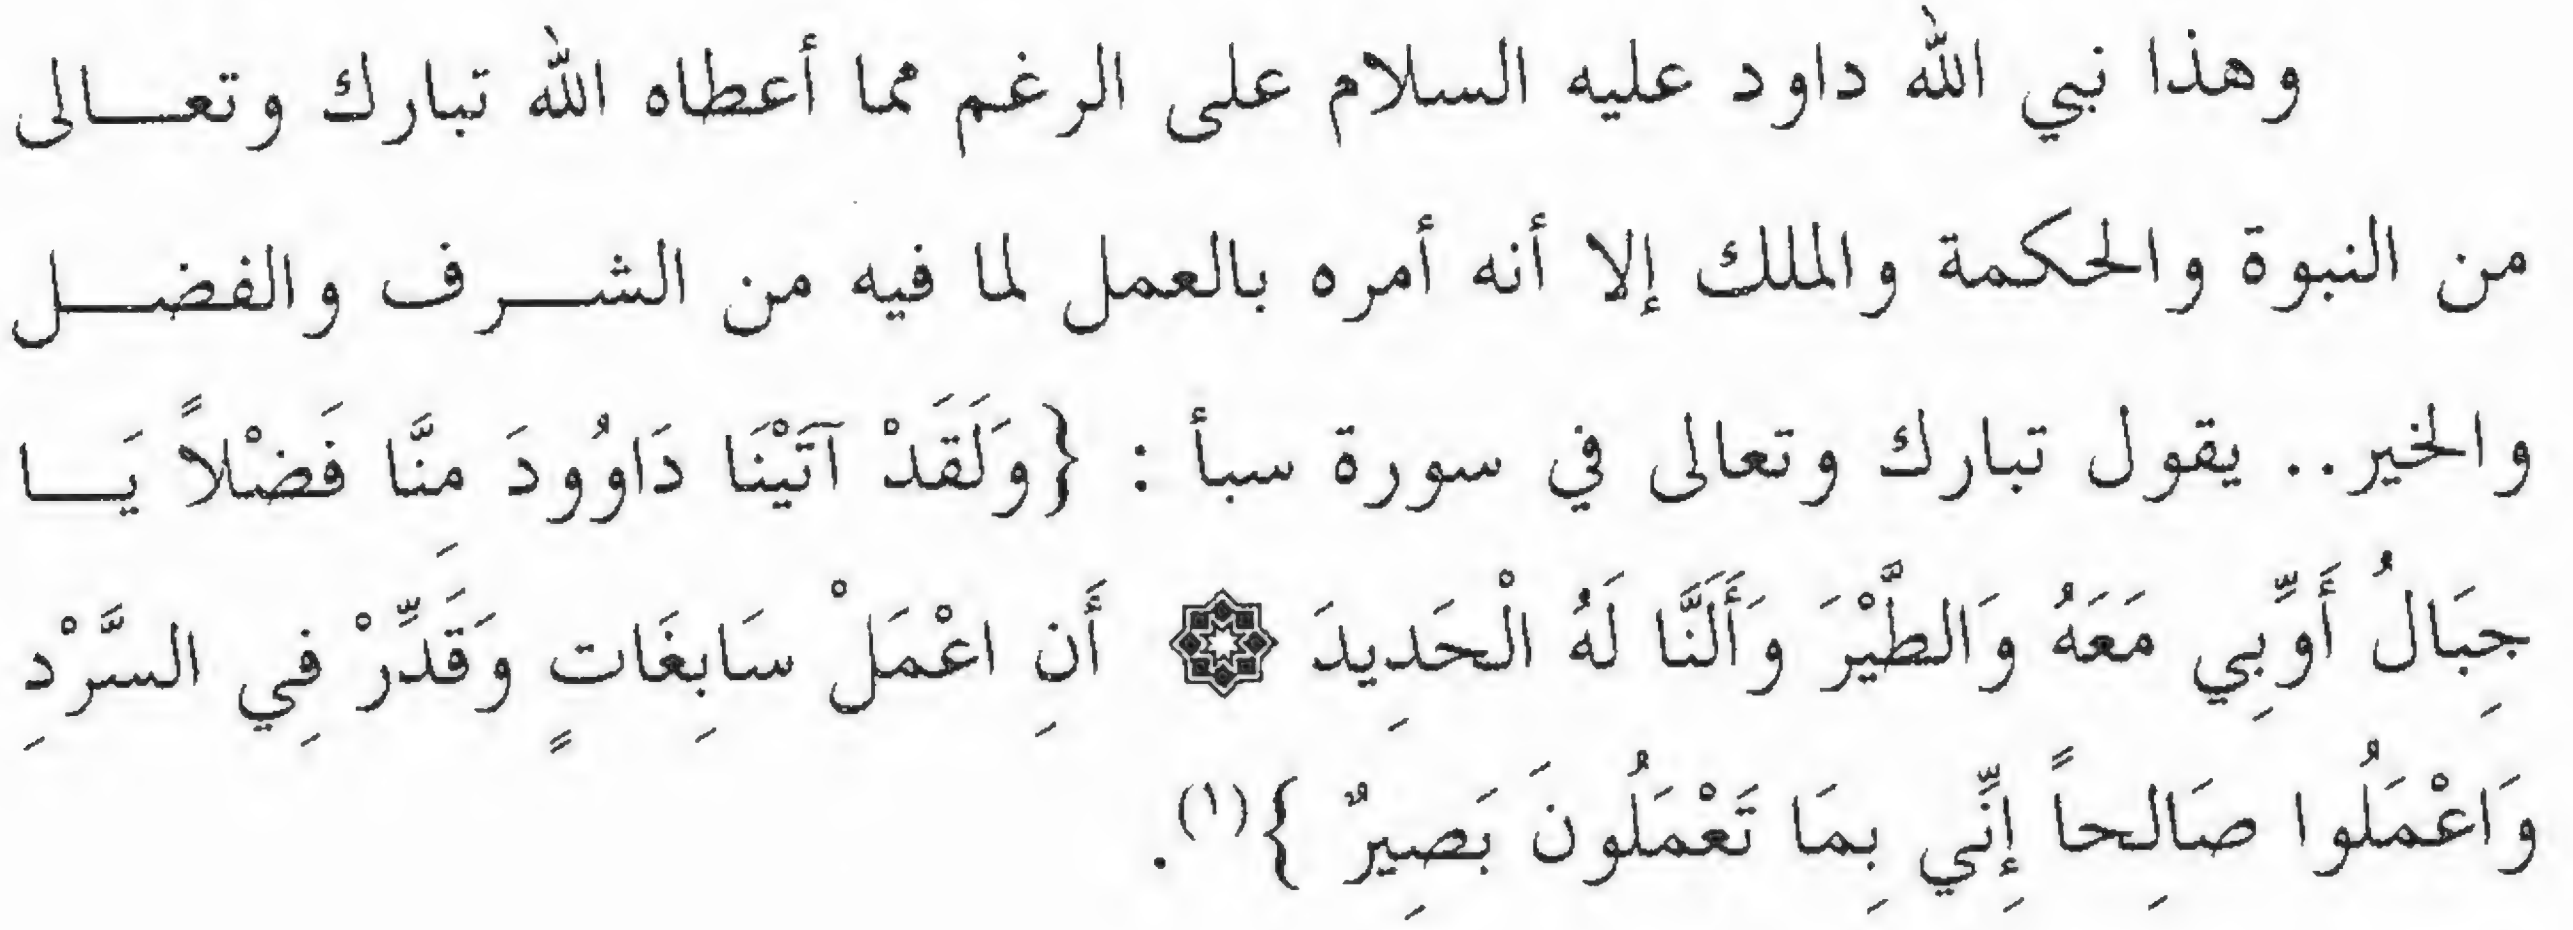 وهذا نبي الله داود عليه السلام على الرغم مما أعطاه الله تبارك وتعالى
من النبوة والحكمة والملك إلا أنه أمره بالعمل لما فيه من الشرف والفضل
والخير.. يقول تبارك وتعالى في سورة سبأ : {وَلَقَدْ آتَيْنَا دَاوُودَ مِنَّا فَضْلاً يَا
جِبَالُ أَوِّبِي مَعَهُ وَالطَّيْرَ وَأَلَنَّا لَهُ الْحَدِيدَ ۞ أَنِ اعْمَلْ سَابِغَاتٍ وَقَدِّرْ فِي السَّرْدِ
وَاعْمَلُوا صَالِحاً إِنِّي بِمَا تَعْمَلُونَ بَصِيرٌ }(١).